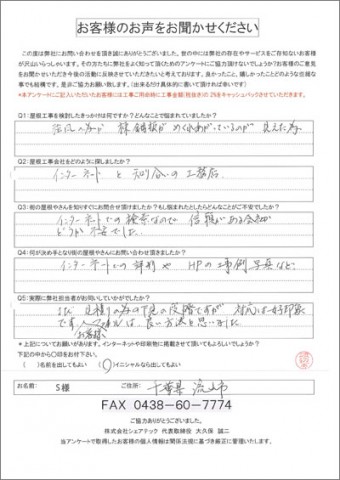 お客様のお声をお聞かせください
この度は弊社にお問い合わせを頂き誠にありがとうございました。世の中には弊社の存在やサービスをご存知ないお客様
が沢山いらっしゃいます。その方たちに弊社をよく知って頂くためのアンケートにご協力頂けないでしょうか？お客様のご意見
をお聞かせいただき今後の活動に反映させていただきたいと考えております。良かったこと、嬉しかったことどのような些細な
事でも結構です。是非ご協力お願い致します。（出来るだけ具体的に書いて頂ければ幸いです）
*本アンケートにご記入いただいたお客様には工事ご用命時に工事金額（税抜き）の2%をキャッシュバックさせていただきます。
Q1：屋根工事を検討したきっかけは何ですか？どんなことで悩まれていましたか？
強風で 棟鈑板が めくれあがっているのが 見えた為
Q2：屋根工事会社をどのように探しましたか？
インターネットと 知り合いの工務店
Q3：街の屋根やさんを知りすぐにお問合せ頂けましたか？もし悩まれたとしたらどんなことがご不安でしたか？
インターネットでの検索なので 信頼がある会社か
どうか不安でした。
Q4：何が決め手となり街の屋根やさんにお問い合わせ頂きましたか？
インターネットでの評判や HPの工事例、写真など
Q5：実際に弊社担当者がお伺いしていかがでしたか？
まだ見積りの為の下見の段階ですが 対応は好印象
です。 は、良い方法と思いました。
お客様
* 上記についてお願いがあります。インターネットや印刷物に掲載させて頂いてもよろしいでしょうか？
下記の中から〇印をお付下さい。
（ ）名前を出してもよい （〇）イニシャルなら出してもよい
お名前： S様 ご住所： 千葉県 流山市
FAX 0438-60-7774
ご協力ありがとうございました。
株式会社シェアテック 代表取締役 大久保 誠二
当アンケートで取得したお客様の個人情報は関係法規に基づき厳正に管理いたします。